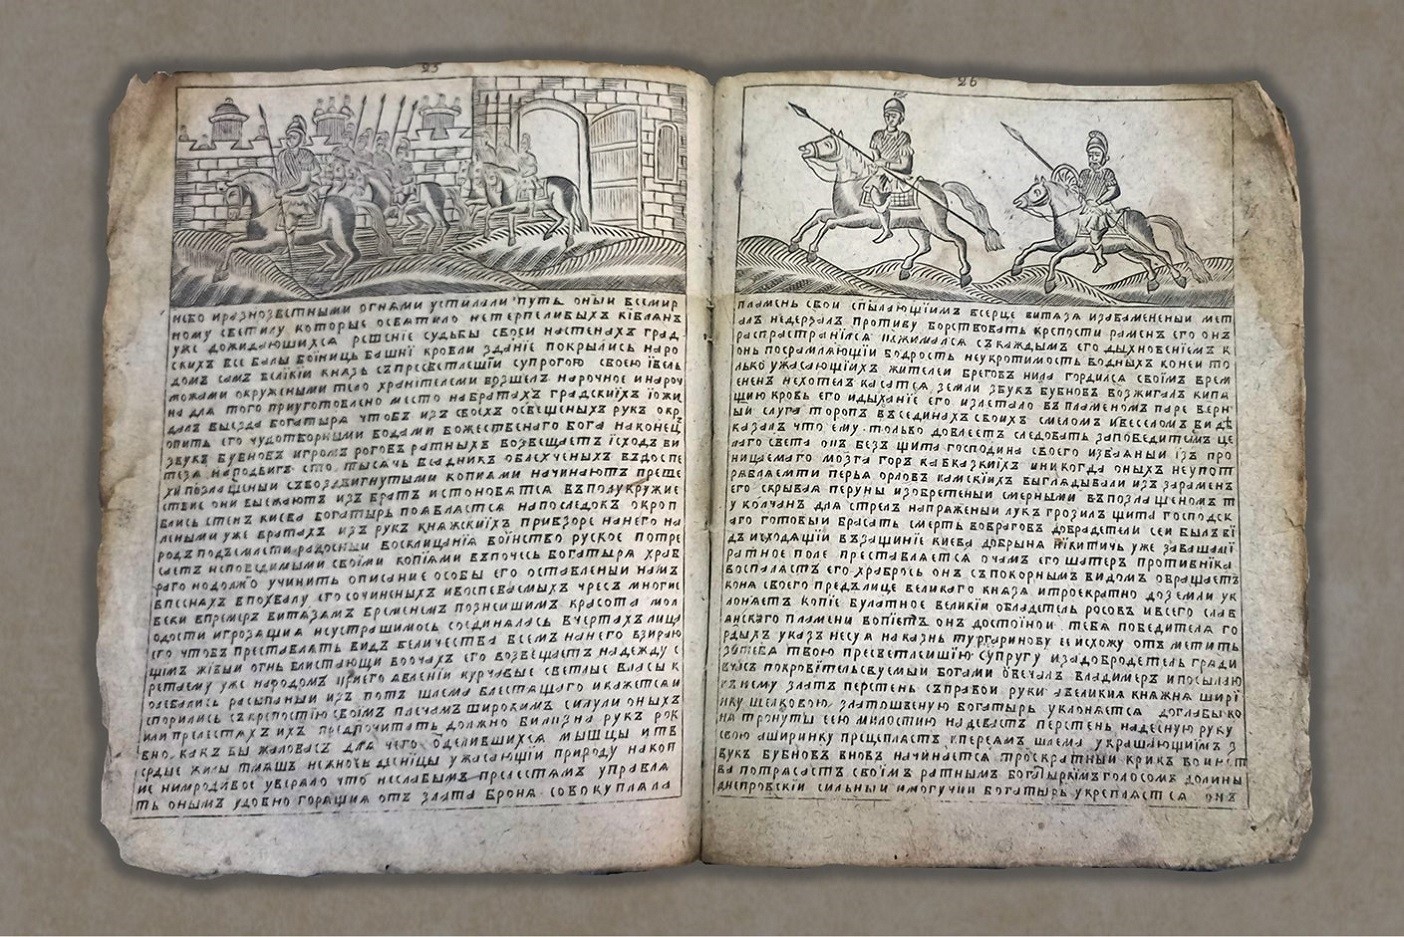 25
небо иразнозвѣтными огнями устилали путь оный всемир
ному светилу которые освятило нетерпеливыхъ кївлянъ
уже дожидающихся решенїе судьбы своси настенахъ град
скихъ все валы боиницъ башнї кровли зданїе покрылись наро
домъ самъ велїкїи князь съпресветлеїшїи супрогою своею
можами окружеными тело хранїтелеми возшелъ нарочное инароч
на для того приуготовлено место навратахъ градскиїхъ
далъ выезда богатыря чтобъ изъ своїхъ освещеныхъ рукъ окр
опить его чудотворными водами божественаго бога наконец
звукъ бубновъ игромъ роговъ ратныхъ возвещаетъ їсходъ ви
теза народвигъ сто тысячъ всадникъ облехченыхъ въдоспе
хи позлащеныи съвоздвигнутыми копиями начинаютъ преше
ствие они выежаютъ изъ вратъ истоновятся въполукружие
близь стенъ киева богатырь появляется напоследокъ окроп
леными уже вратахъ изъ рукъ княжскиїхъ привзоре нанего на
родъ подъемлетъ радосныи восклицанїя воїнство руское потре
саетъ непобедимыми своїми копїями въпочесь богатыря храб
раго нодолжно учинить описание особы его оставленыи намъ
впесняхъ впохвалу его сочиненыхъ ивоспеваемыхъ чресъ многие
веки впримеръ витязамъ временемъ позднеишимъ красота мол
одости игрозящия неустрашимось соединялась вчертахъ лица
его чтобъ преставлять видъ величества всемъ нанего взираю
щїмъ жївыи огнь блистающи воочахъ его возвещаетъ надежду с
ретаему уже народомъ приего явленїи курчавые светлые власы к
олебались расыпаныи изъ потъ шлема блестящаго икажется и
спорились съкрепостїю своїмъ плечамъ широкимъ силули оныхъ
или прелестяхъ ихъ предпочитать должно билизна рукъ рок
вно какъ бы жаловась для чего оделившихся мышцы итв
ердые жилы тмяшъ нежность десницы ужасающїи природу накоп
ис нимродавое уверяло что неслабымъ прелестямъ управля
ть онымъ удобно горящия отъ злата броня совокупляла
26
пламень свои спылающїимъ всерце витязя изавамененыи мет
алъ недерзалъ противу борствовать крепости раменъ его онъ
распространїлся ижималса съкаждымъ его дыхновенїемъ к
онь посрамляющїи бодрость неукротимость водныхъ конеи то
лько ужасающїихъ жителеи бреговъ нила гордился своїмъ врем
ененъ нехотелъ касатся земли звукъ бубновъ возжигалъ кипя
щию кровь его идыханїе его излетало въпламеномъ паре верн
ыи слуга торопъ въсединахъ своихъ смеломъ ивеселомъ видѣ
казалъ что ему только довлеетъ следовать заповедитымъ це
лаго света онъ безъ щита господина своего изваяныи їзъ про
ницаемаго мозга горъ кавказкиїхъ иникогда оныхъ неупот
рябляемти перья орловъ камскїихъ выглядывали изъ зараменъ
его скрывая перуны изобретеныи смерными въпозлащеномъ т
у колчанъ для стрелъ напряженыи лукъ грозилъ щита господск
аго готовыи брасать смерть вовраговъ добрадетели сеи былъ вї
дъ исходящїи възащиние киева добрыня нїкитичь уже завашамї
ратное поле преставляется очамъ его шатеръ противнїка
воспалястъ его храбросъ онъ съпокорнымъ видомъ обращастъ
коня своего предълице великаго князя итроекратно доземли ук
лоняетъ копїе булатное великїи обладетель росовъ ивсего слав
янскаго пламени вопїетъ онъ достоїнои тебя победителя го
рдыхъ указъ несуя наказнь тургаринову се исхожу отъметить
затебя твою пресветлеишїю супругу изадобродетель гради
вчсъ покровїтельсвуемыи богами овечалъ владимеръ ипосылаю
къ нему златъ перстень съправои руки авеликия княжня ширї
нку шелковою златошвеную богатырь уклоняется доглабыко
на тронуты сею милостию надевастъ перстень надесную руку
свою аширинку прецепляетъ кпереямъ шлема украшающимъ з
вукъ бубновъ вновь начинается троскратныи крикъ воинст
ва потрясастъ своїмъ ратнымъ богатырскїмъ голосомъ долины
днепровскїи сильныи имогучии богатырь укрепляется онъ